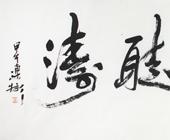 聽濤
甲午